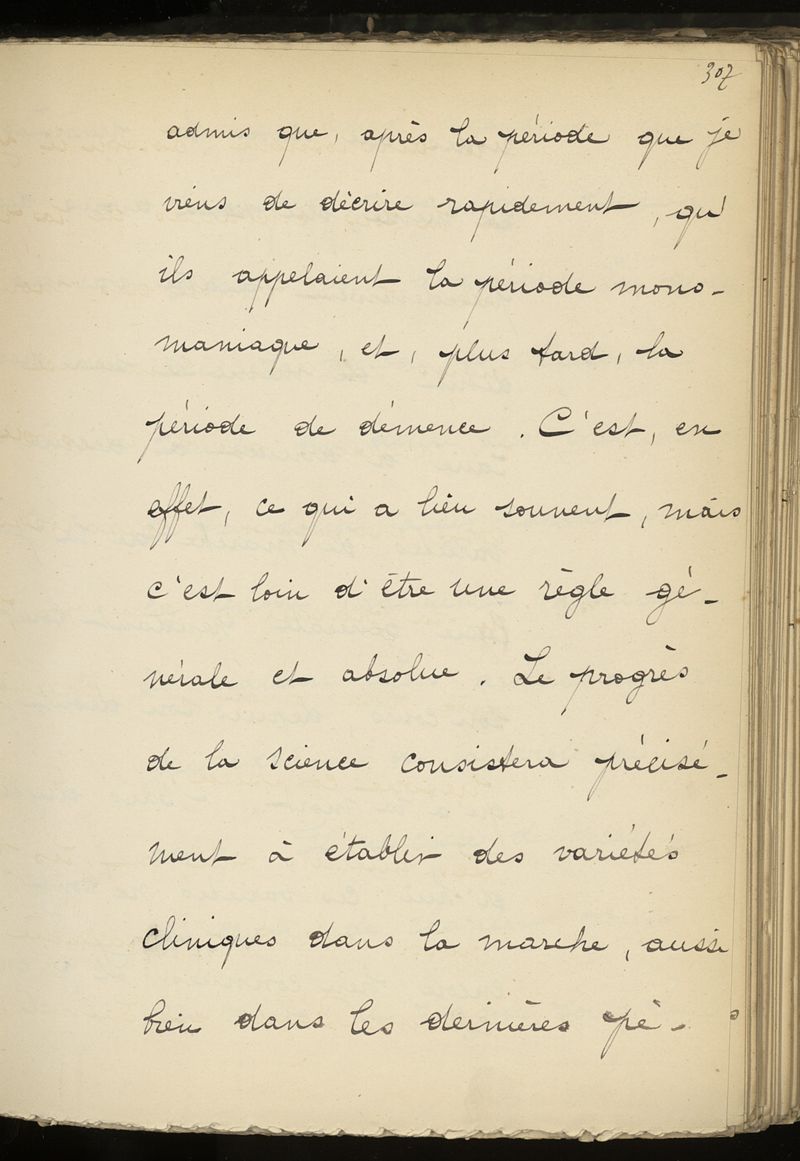 307
admis que, après la période que je
viens de décrire rapidement, qu'
ils appelaient la période mono-
maniaque, et, plus tard, la
période de démence. C'est, en
effet, ce qui a lieu souvent, mais
c'est loin d'être une règle gé-
nérale et absolue. Le progrès
de la science consistera précisé-
ment à établir des variétés
cliniques dans la marche, aussi
bien dans les dernières pé-